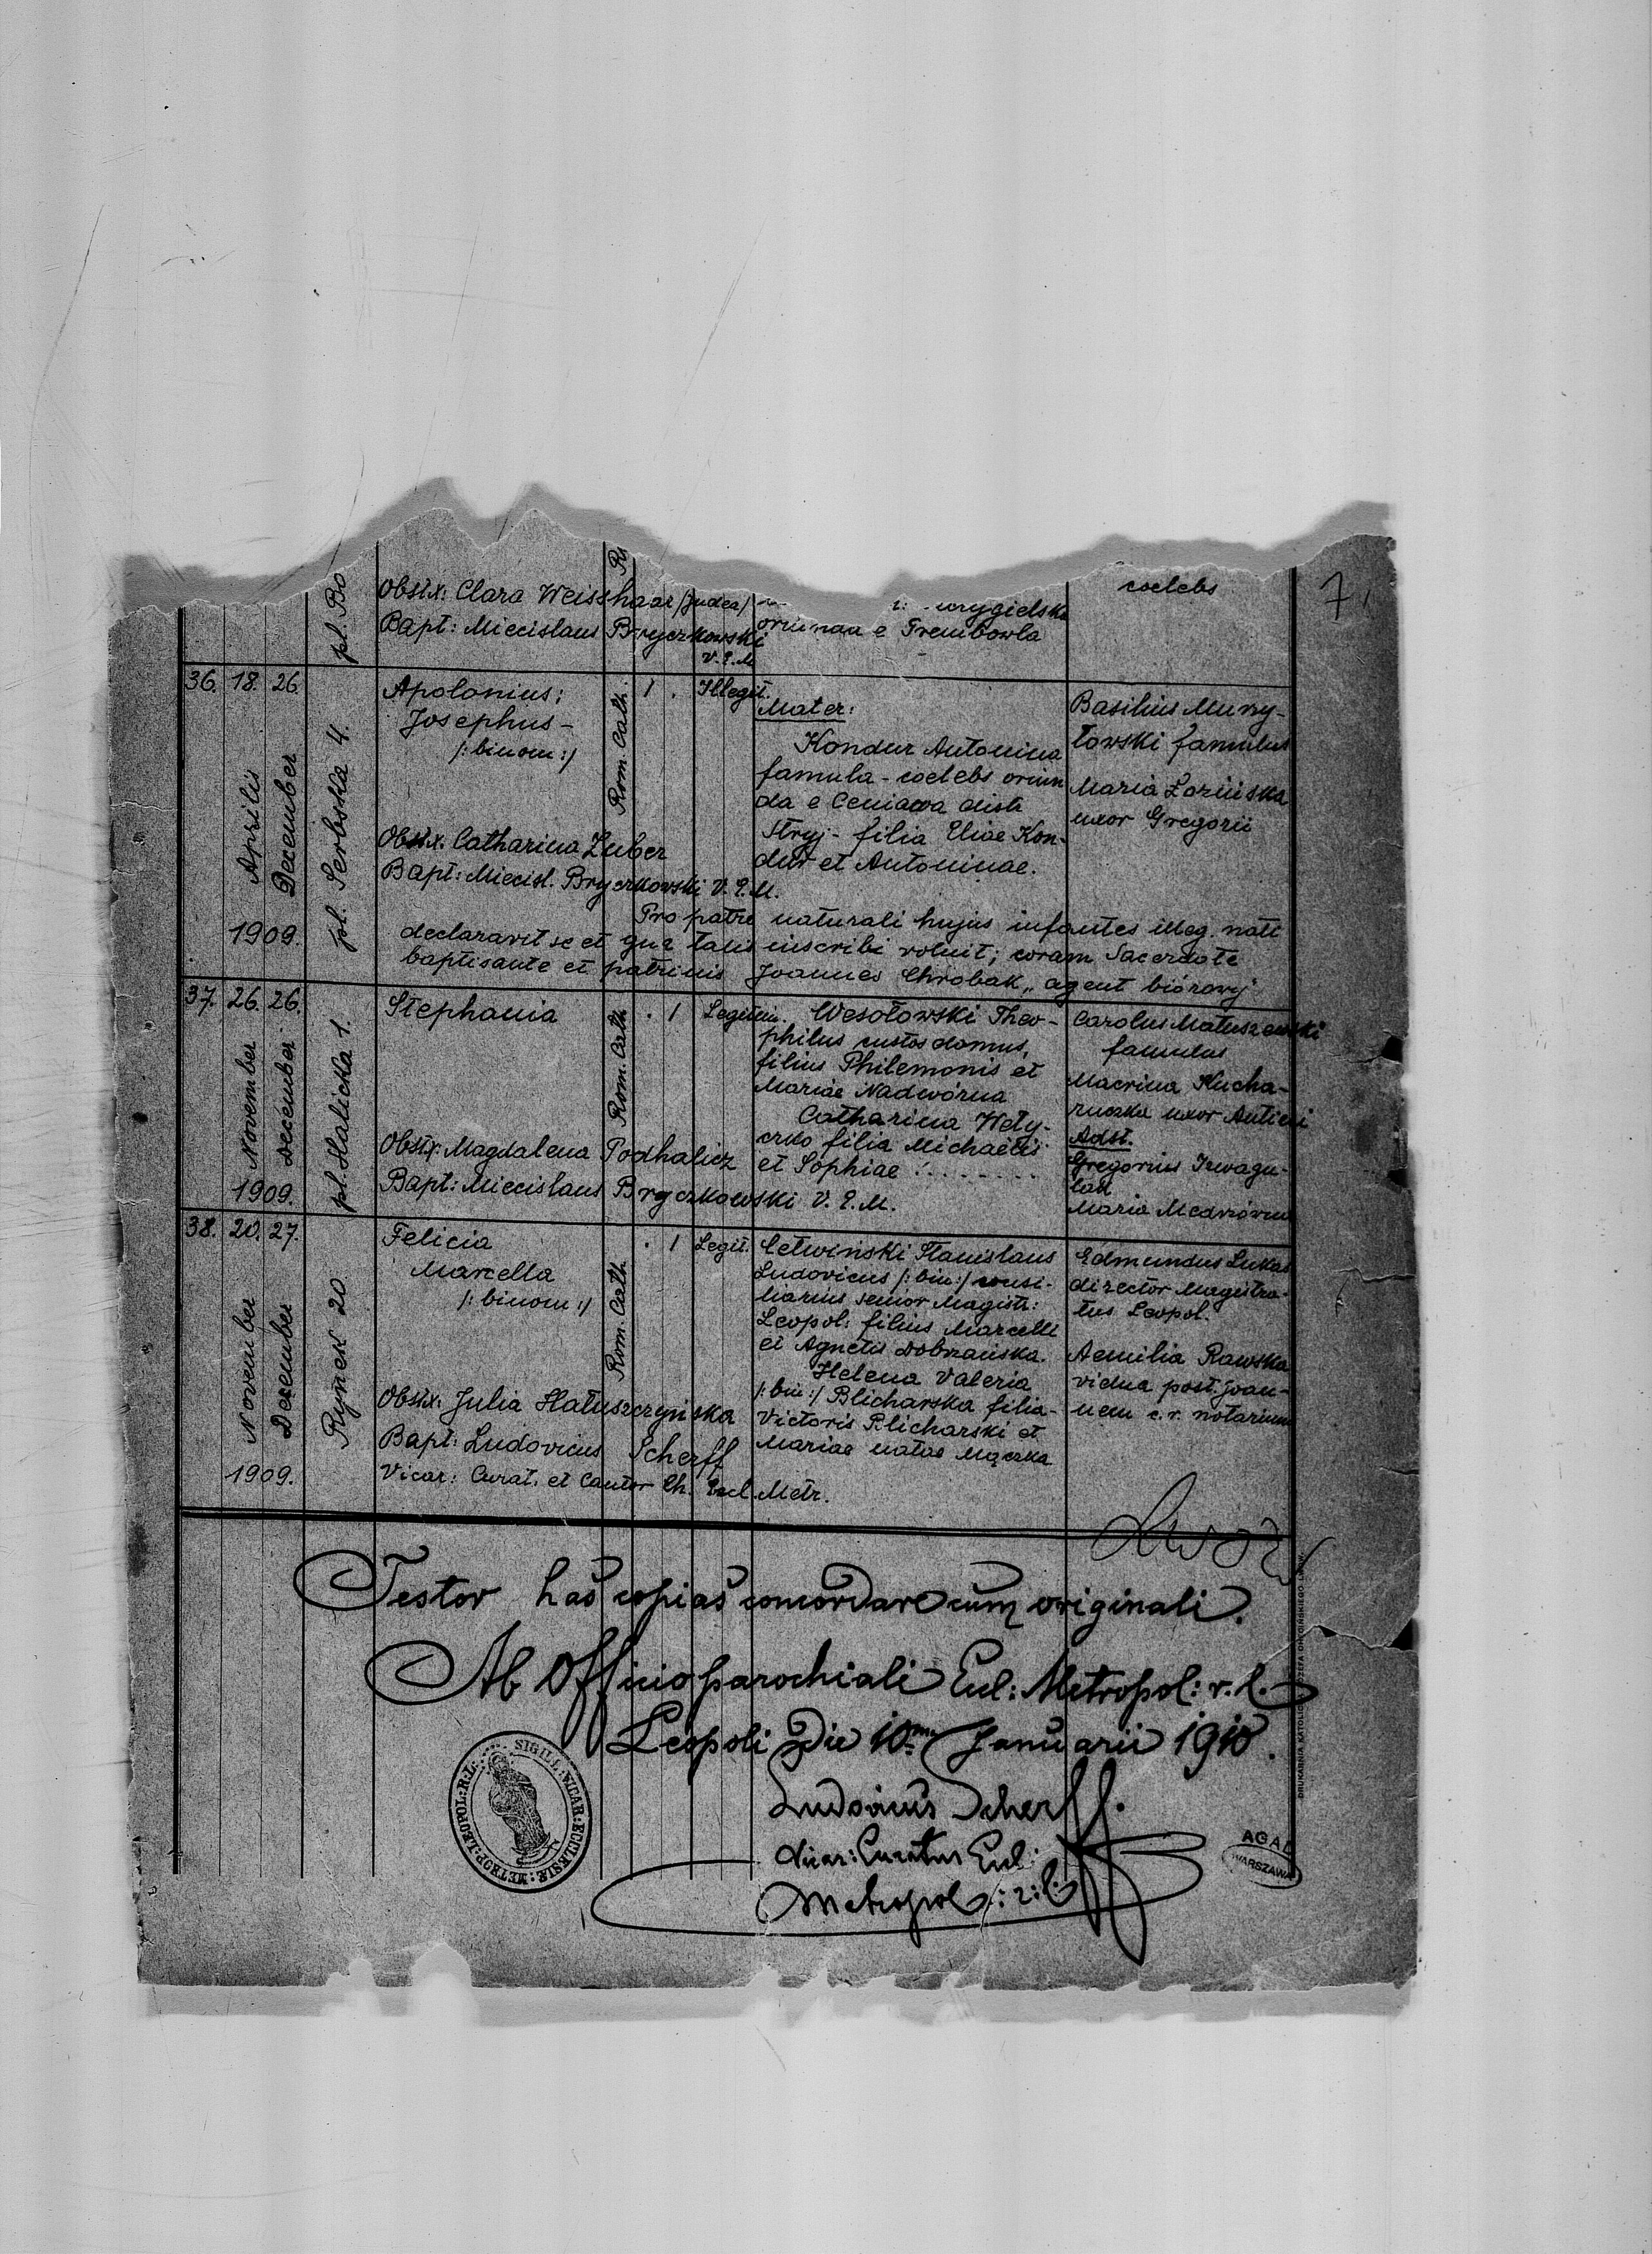 7.
pl. Bo
Obstx: Clara Weisshaar /Judea/
Bapt: Miecislaus Bryczkowski
V. E. M.
oriunda e Trembowla
coelebs
36. 18. 26.
Aprilis
December
1909.
pl. Serbska 4.
Apolonius;
Josephus -
/: binom :/
Rom. Cath.
1 .
Illegit.
Obstx. Catharina Zuber
Bapt: Miecisl. Bryczkowski V. E. M.
Mater:
Kondur Antonina
famula - coelebs oriun
da e Ceniawa distr
Stryj - filia Eliae Kon-
dur et Antoninae.
Basilius Muzy-
łowski famulus
Maria Łozińska
uxor Gregorii
Pro patre naturali hujus infantes illeg. nati
declaravit se et qua talis inscribi voluit; coram Sacerdote
baptisante et patrinis Joannes Chrobak, „agent biórowy
37. 26. 26.
November
December
1909.
pl. Halicka 1.
Stephania
Rom. Cath
. 1
Legitim.
Obstx: Magdalena Podhalicz
Bapt: Miecislaus Bryczkowski V. E. M.
Wesołowski Theo-
philus custos domus,
filius Philemonis et
Mariae Nadwórna
Catharina Hety-
czko filia Michaelis
et Sophiae
Carolus Matuszewski
famulus
Macrina Kucha-
ruczka uxor
Adst.
Gregorius
Maria
38. 20. 27.
November
December
1909.
Rynek 20
Felicia
Marcella
/: binom :/
Rom. Cath
. 1
Legit.
Obstx. Julia Hałuszczyńska
Bapt: Ludovicus Scherff
Vicar: Curat. et Cantor Ch. Eccl. Metr.
Cetwiński Stanislaus
Ludovicus /: bin :/ consi-
liarius senior Magistr:
Leopol: filius Marcelli
et Agnetis Dobrzańska.
Helena Valeria
/: bin :/ Blicharska filia-
Victoris Blicharski et
Mariae natae Mączka
Edmundus Lukas
director Magistra-
tus Leopol.
Aemilia Rawska
vidua post. Joan-
nem c. r. notarium
Testor has copias concordare cum originali.
Ab Officio parochiali Eccl: Metropol: r. l.
Leopoli Die 10m. Januarii 1910.
Ludovicus Scherff.
Vicar: Curatus Eccl:
Metropol: r: l:
SIGILL: VICAR: ECCLESIÆ: METROP: LEOPOL: R: L:
AGAD
WARSZAWA